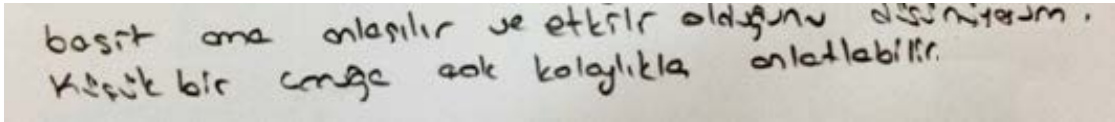 basit ama anlaşılır ve etkilr olduğunu düşünüyorum.
Küçük bir çocuğa çok kolaylıkla anlatlabilir.